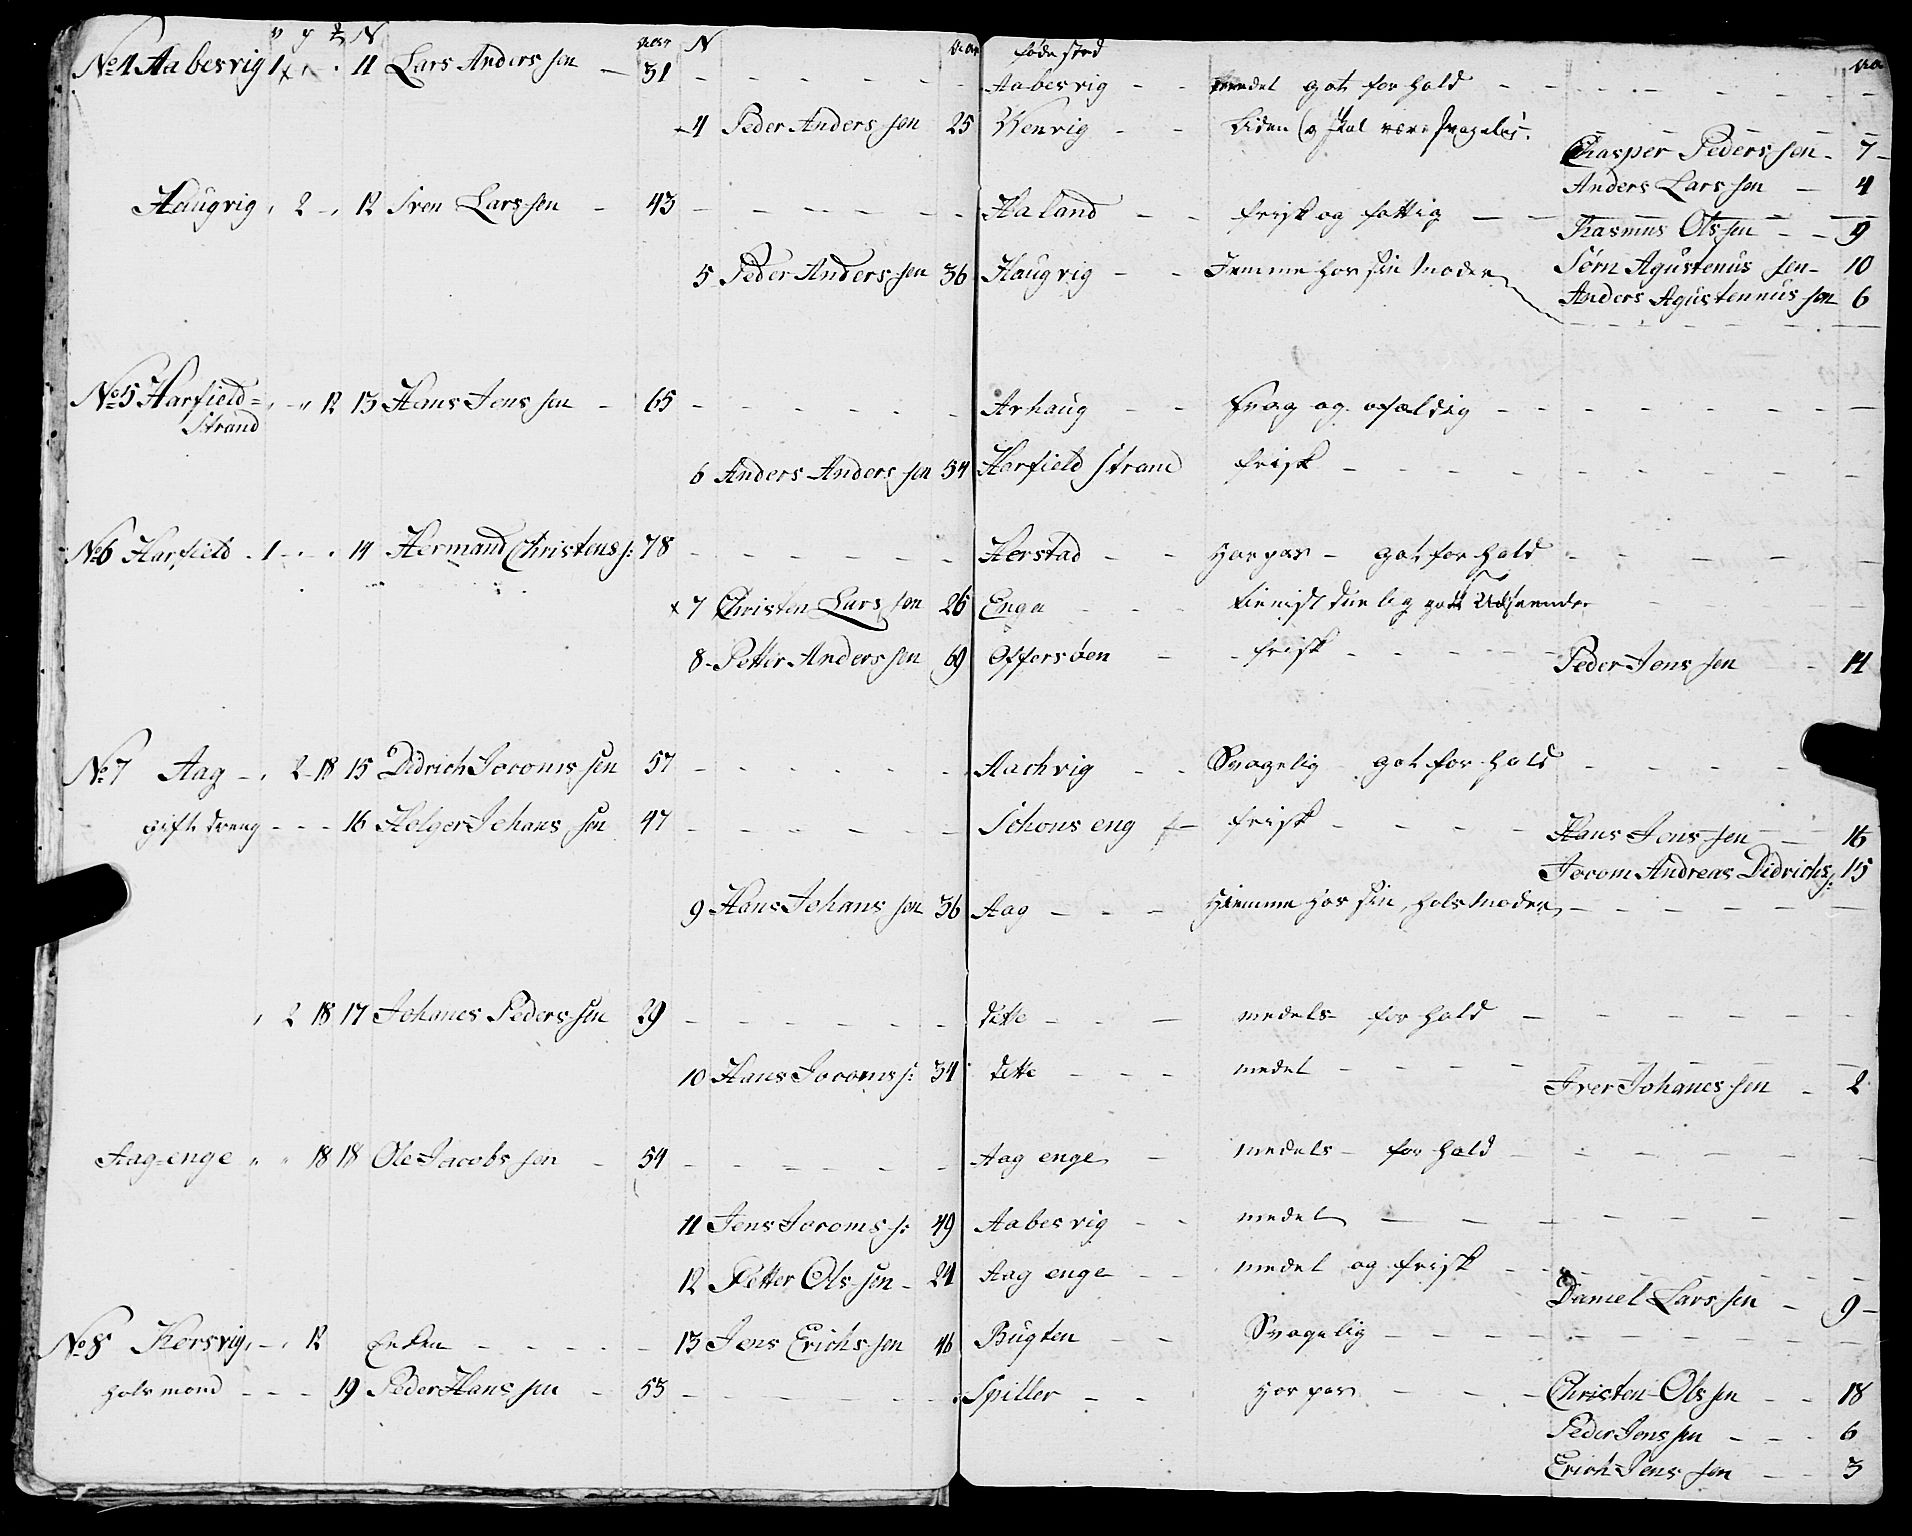 v y N aar N aar føde sted aa
No 4 Aabesvig 1 11 Lars Anders sen — 31 - - - - - Aabesvig - - medel got forhold - - - -
4 Peder Anders sen 25 Wenvig - - Liden
Chasper Peders sen - 7 -
Anders Lars sen — 4
Haugvig 2 - 12 Sven Lars sen - 43 - - - - - Haland - - frisk og fattig — —
Rasmus Ols sen - - 9
5 Peder Anders sen 36 Haugvig - - Jemme hos sin Moder
Sørn Agustenus sen - 10
Anders Agustennus sen 6
No 5 Harfield = 12 13 Hans Jens sen - 65 - - - - - Arhaug - - svag og - - - -
Strand
6 Anders Anders sen 54 Harfield Strand frisk - - - -
No 6 Harfield - 1 - - 14 Hermand Christens s: 78 - - - - - Herstad - - got forhold - - - -
x 7 Christen Lars sen 26 Enga - - - Udseende
8 - Petter Anders sen 69 Offersøen - - frisk - - - -
Peder Jens sen - 14
No 7 Aag - 2 - 18 15 Didrich Jocoms sen 57 - - - - - Aachvig - - Svagelig got forhold - - - -
gift dreng - - - 16 Helger Johans sen 47 - - - - - Schons eng frisk - - - -
Hans Jens sen — 16
Jocom Andreas Didrichs s: 15
9 Hans Johans sen 36 Aag - - - Hiemme hos sin Moder - - - -
2 18 17 Johanes Peders sen 29 - - - - - dette - - - medels forhold - - - -
10 Hans Jocoms s: 34 dette - - - medel - - - -
Iver Johanes sen - 2
Aag = enge 18 18 Ole Jacobs sen - 54 - - - - - Aag enge - medels - forhold - - - -
11 Jens Jocoms s: 49 Aabesvig - - medel - - - -
12 Petter Ols sen - 24 Aag enge - - medel og frisk - - - -
Daniel Lars sen - 9 -
No 8 Kersvig - - 12 Enken - - - - - 13 Jens Erichs sen 46 Bugten - - Svagelig - - - -
- - - 19 Peder Hans sen - 53 - - - - - Spiller - - - - -
Christen Ols sen - - 18
Peder Jens sen - - - 6
Erich Jens sen - - 3